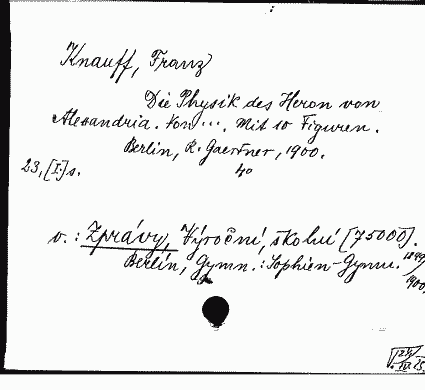 Knauff, Franz
Die Physik des Heron von
Alexandria. Von .... Mit 10 Figuren.
Berlin, R. Gaertner, 1900.
23, [I] s. 4o
v.: Zprávy, Výroční, školní [75000].
Berlin, Gymn.: Sophien-Gymn. 1899/1900